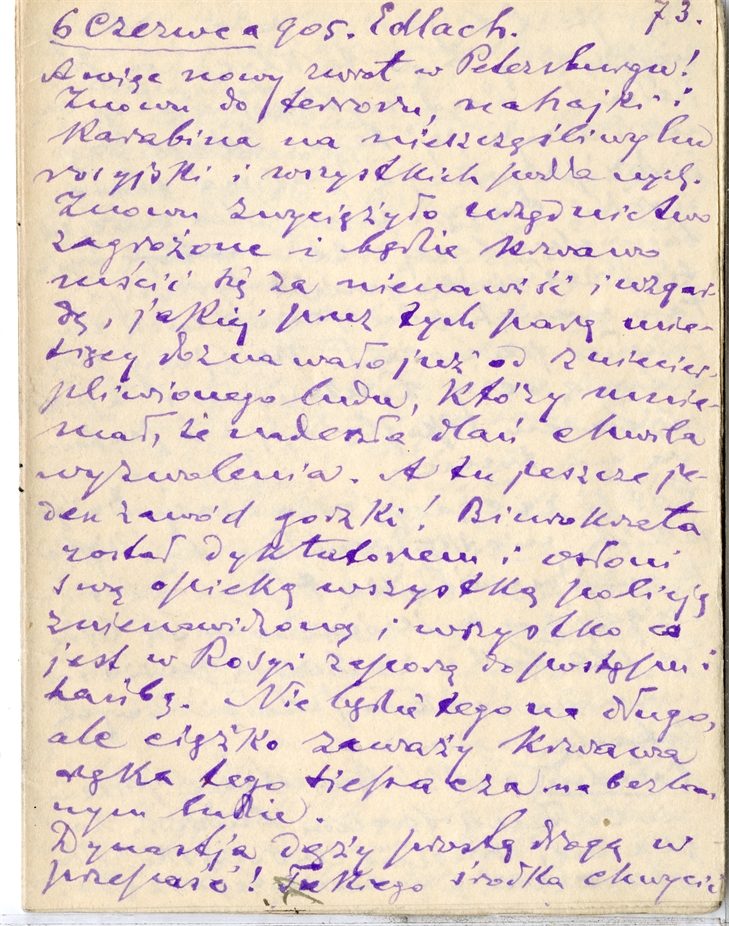 6 Czerwca 905. Edlach. 73.
A więc nowy zwrot w Petersburgu!
Znowu do terroru, nahajki i
karabina na nieszczęśliwy lud
rosyjski i wszystkich podda nych.
Znowu zwyciężyło urzędnictwo
zagrożone i będzie krwawo
mścić się za nienawiść i wzgar-
dę, jakiej przez tych parę mie-
sięcy doznawało już od zniecier-
pliwionego ludu, który mnie-
mał, że nadeszła dlań chwila
wyzwolenia. A tu jeszcze je-
den zawód gorzki! Biurokrata
został dyktatorem i osłoni
swą opieką wszystką policję
znienawidzoną i wszystko co
jest w Rosyi zaporą do postępu i
hańbą. Nie będzie tego na długo,
ale ciężko zaważy krwawa
ręka tego siepacza na bezbron-
nym ludzie.
Dynastja dąży prostą drogą w
przepaść! Takiego środka chwycić